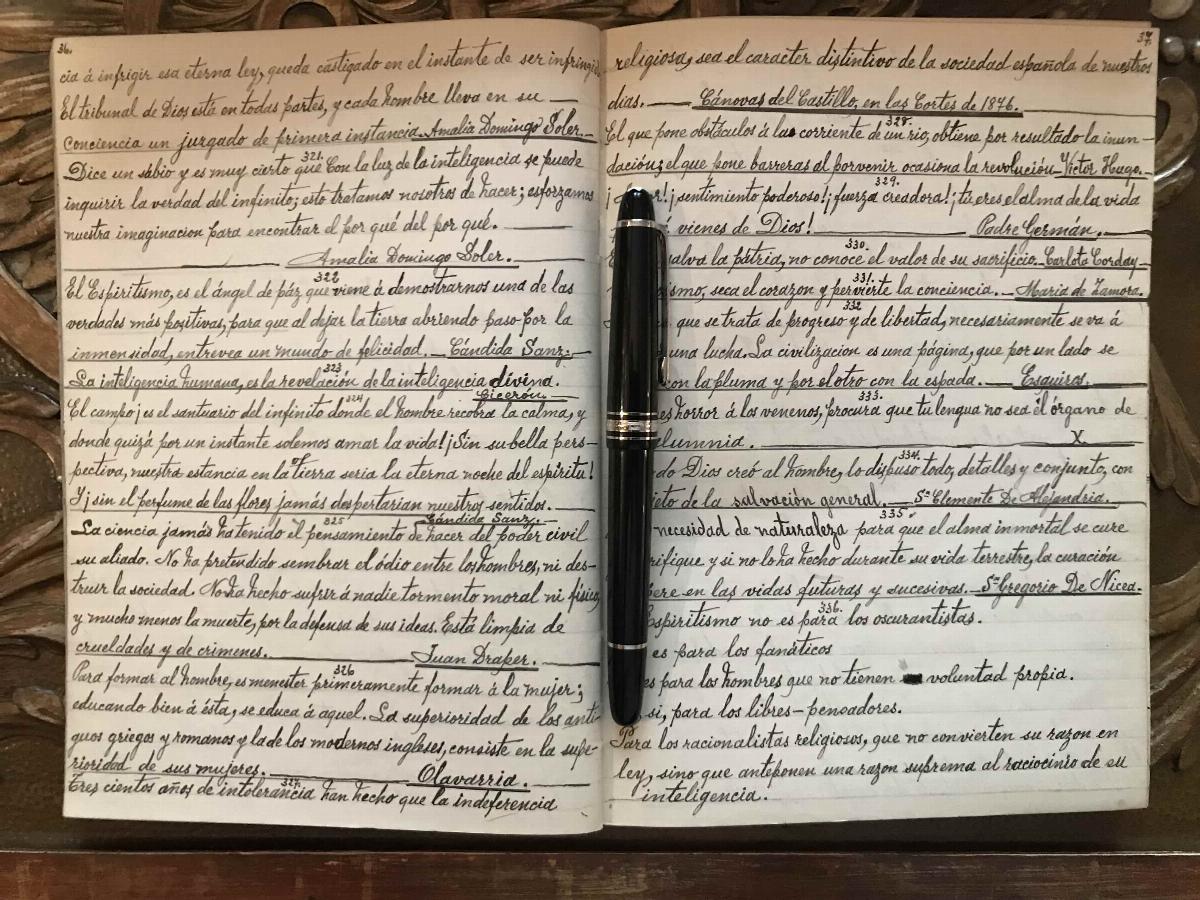 36.
cia á infrigir esa eterna ley, queda castigado en el instante de ser infringida
El tribunal de Dios está en todas partes, y cada hombre lleva en su
conciencia un juzgado de primera instancia. Amalia Domingo Soler.
321.
Dice un sábio y es muy cierto que Con la luz de la inteligencia se puede
inquirir la verdad del infinito; esto tratamos nosotros de hacer; esforzamos
nuestra imaginacion para encontrar el por qué del por qué.
Amalia Domingo Soler.
322
El Espiritismo, es el ángel de páz que viene á demostrarnos una de las
verdades más positivas, para que al dejar la tierra abriendo paso por la
inmensidad, entrevea un mundo de felicidad. Cándida Sanz.
323.
La inteligencia humana, es la revelación de la inteligencia divina.
Cicerón.
324
El campo ¡es el santuario del infinito donde el hombre recobra la calma, y
donde quizá por un instante solemos amar la vida! ¡Sin su bella pers-
pectiva, nuestra estancia en la tierra seria la eterna noche del espiritu!
Y ¡sin el perfume de las flores jamás despertarian nuestros sentidos.
Cándida Sanz.
325
La ciencia jamás ha tenido el pensamiento de hacer del poder civil
su aliado. No ha pretendido sembrar el ódio entre los hombres, ni des-
truir la sociedad. No ha hecho sufrir á nadie tormento moral ni físico,
y mucho menos la muerte, por la defensa de sus ideas. Está limpia de
crueldades y de crimenes. Juan Draper.
326
Para formar al hombre, es menester primeramente formar á la mujer;
educando bien á ésta, se educa á aquel. La superioridad de los anti-
guos griegos y romanos y la de los modernos ingleses, consiste en la supe-
rioridad de sus mujeres. Olavarria.
327.
Tres cientos años de intolerancia han hecho que la indeferencia
37.
religiosa, sea el caracter distintivo de la sociedad española de nuestros
dias. Cánovas del Castillo, en las Cortes de 1876.
328.
El que pone obstáculos á la corriente de un rio, obtiene por resultado la inun-
dacion; el que pone barreras al porvenir ocasiona la revolución Victor Hugo.
329.
¡sentimiento poderoso! ¡fuerza creadora! ¡tu eres el alma de la vida
vienes de Dios! Padre Germán.
330.
salva la patria, no conoce el valor de su sacrificio. Carlota Corday
331.
ismo, seca el corazon y pervierte la conciencia. Maria de Zamora.
332
que se trata de progreso y de libertad, necesariamente se va á
una lucha. La civilizacion es una página, que por un lado se
con la pluma y por el otro con la espada. Esquiros.
333.
es horror á los venenos, procura que tu lengua no sea el órgano de
lumnia. X.
334.
do Dios creó al hombre, lo dispuso todo, detalles y conjunto, con
jeto de la salvación general. Sn Clemente De Alejandria.
335.
necesidad de naturaleza para que el alma inmortal se cure
rifique y si no lo ha hecho durante su vida terrestre, la curación
ere en las vidas futuras y sucesivas. Sn Gregorio De Nicea.
336.
Espiritismo no es para los oscurantistas.
es para los fanáticos
es para los hombres que no tienen voluntad propia.
si, para los libres-pensadores.
Para los racionalistas religiosos, que no convierten su razon en
ley, sino que anteponen una razon suprema al raciocinio de su
inteligencia.